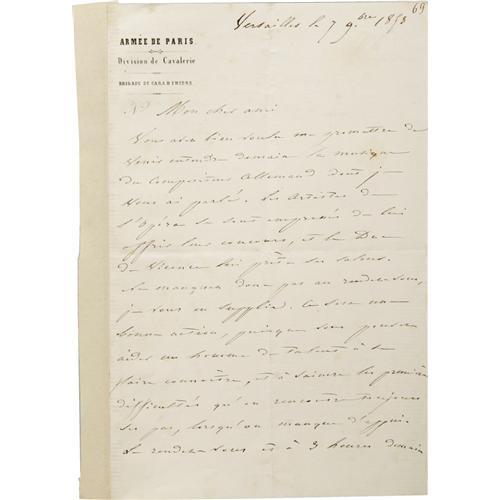 69
Versailles le 7 9bre 1853
ARMÉE DE PARIS
Division de Cavalerie
BRIGADE DE CARABINIERS
No Mon cher ami
Vous avez bien voulu me promettre de
venir entendre demain la musique
du compositeur Allemand dont je
vous ai parlé. Les Artistes de
l'Opéra se sont empressés de lui
offrir leur concours, et le Duc
de Vicence lui prête ses salons.
Ne manquez donc pas au rendez-vous,
je vous en supplie. Ce sera une
bonne action, puisque vous pouvez
aider un homme de talent à se
faire connaître, et à vaincre les premières
difficultés qu'on rencontre toujours
ses pas, lorsqu'on manque d'appui.
Le rendez-vous est à 3 heures demain